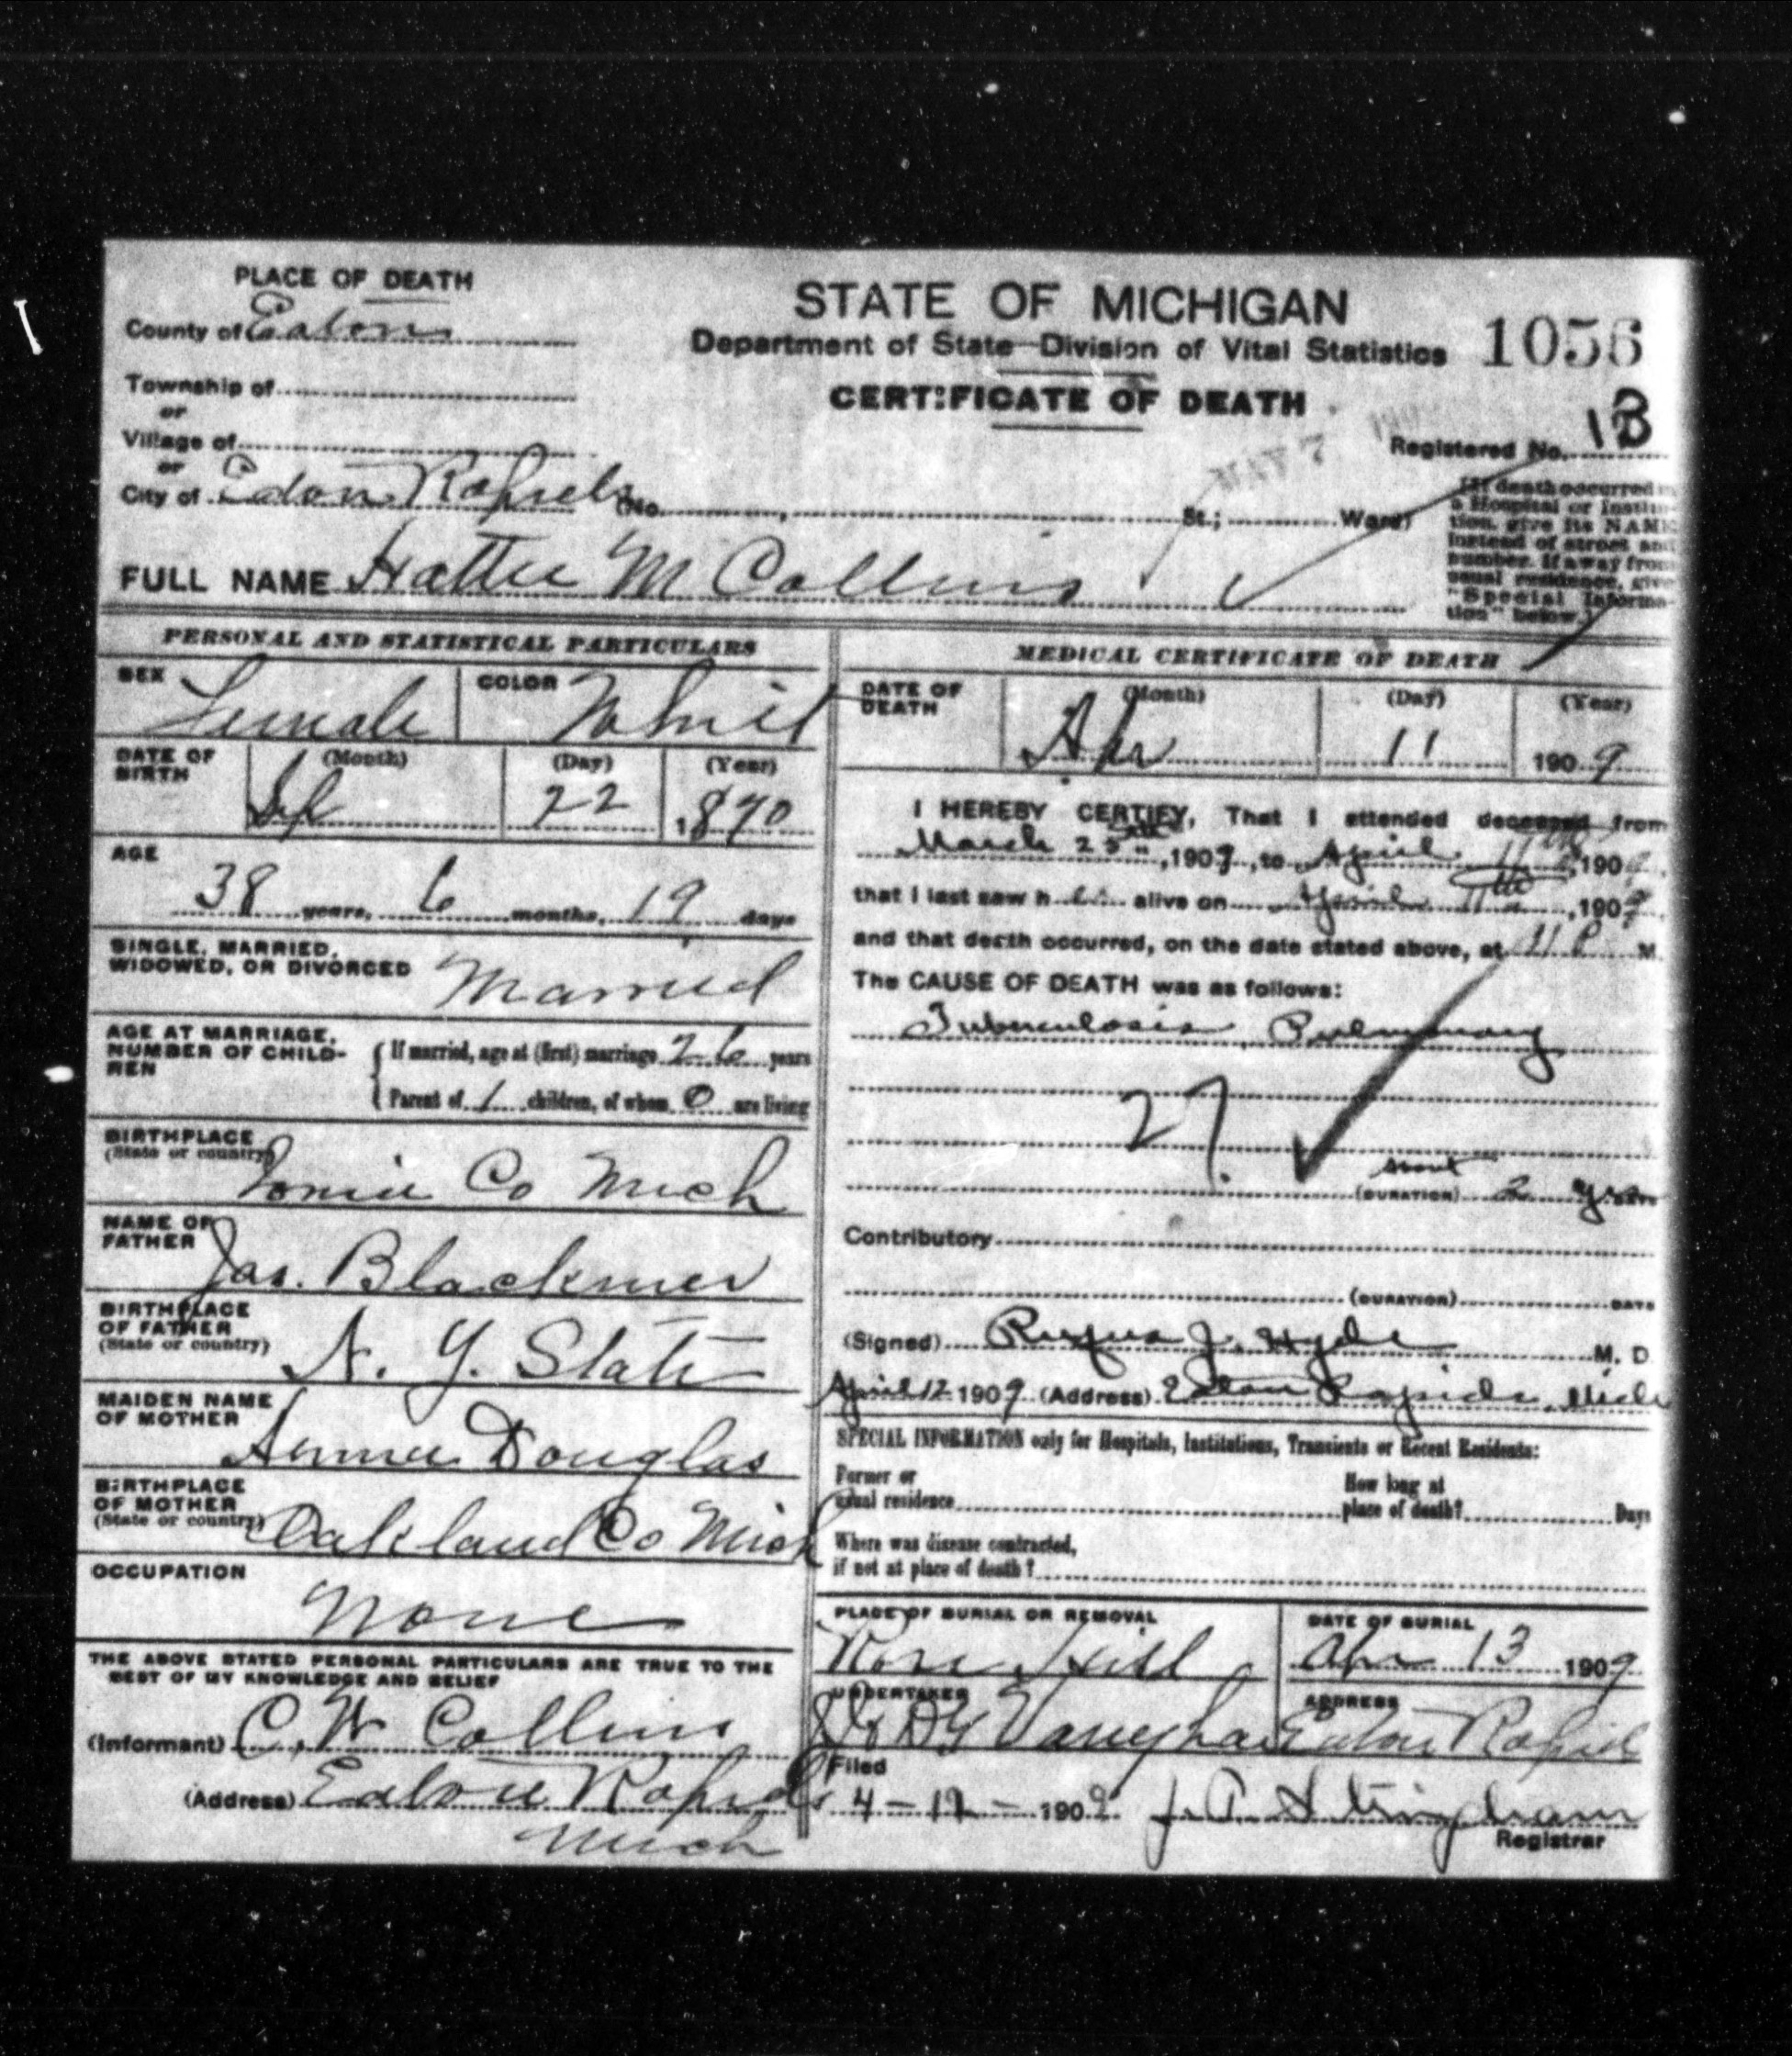 PLACE OF DEATH
County of Eaton
Township of
or
Village of
or
City of Eaton Rapids (No. , St.; Ward)
STATE OF MICHIGAN
Department of State—Division of Vital Statistics
1056
CERTIFICATE OF DEATH
MAY 7
Registered No. 13
[If death occurred in
a Hospital or Institu-
tion, give its NAME
instead of street and
number. If away from
usual residence, give
"Special Informa-
tion" below.]
FULL NAME Hattie M Collins
PERSONAL AND STATISTICAL PARTICULARS
SEX Female COLOR White
DATE OF BIRTH (Month) (Day) (Year)
Sep 22 1870
AGE
38 years, 6 months, 19 days
SINGLE, MARRIED,
WIDOWED, OR DIVORCED Married
AGE AT MARRIAGE,
NUMBER OF CHILD-
REN
If married, age at (first) marriage 26 years
Parent of 1 children, of whom 0 are living
BIRTHPLACE
(State or country)
Ionia Co Mich
NAME OF
FATHER
Jas. Blackmer
BIRTHPLACE
OF FATHER
(State or country)
N. Y. State
MAIDEN NAME
OF MOTHER
Douglas
BIRTHPLACE
OF MOTHER
(State or country)
Oakland Co Mich
OCCUPATION
None
THE ABOVE STATED PERSONAL PARTICULARS ARE TRUE TO THE
BEST OF MY KNOWLEDGE AND BELIEF
(Informant) C. W Collins
(Address) Eaton Rapids
Mich
MEDICAL CERTIFICATE OF DEATH
DATE OF
DEATH
(Month) (Day) (Year)
Apr 11 1909
I HEREBY CERTIFY, That I attended deceased from
March 25th, 1909, to April 11th 1909,
that I last saw her alive on April 11th, 1909,
and that death occurred, on the date stated above, at 11 P M.
The CAUSE OF DEATH was as follows:
Tuberculosis, Pulmonary
27
about
(DURATION) 2 years
Contributory
(DURATION) DAYS
(Signed) Rufus J. Hyde M. D.
April 12 1909 (Address) Eaton Rapids, Mich
SPECIAL INFORMATION only for Hospitals, Institutions, Transients or Recent Residents:
Former or
usual residence
How long at
place of death? Days
Where was disease contracted,
if not at place of death?
PLACE OF BURIAL OR REMOVAL
Rose Hill
DATE OF BURIAL
Apr 13 1909
UNDERTAKER
Vaughan
ADDRESS
Eaton Rapids
Filed
4-12-1909 J. Stringham
Registrar